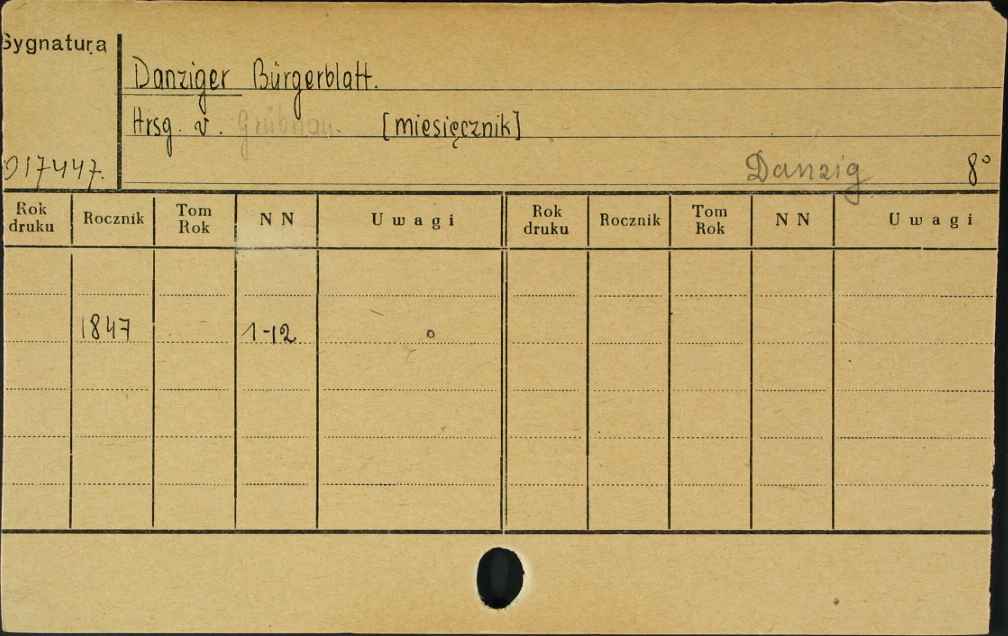 Sygnatura
Danziger Bürgerblatt.
Hrsg. v. [miesięcznik]
017447.
Danzig 8°
Rok druku Rocznik Tom Rok N N Uwagi Rok druku Rocznik Tom Rok N N Uwagi
1847 1-12